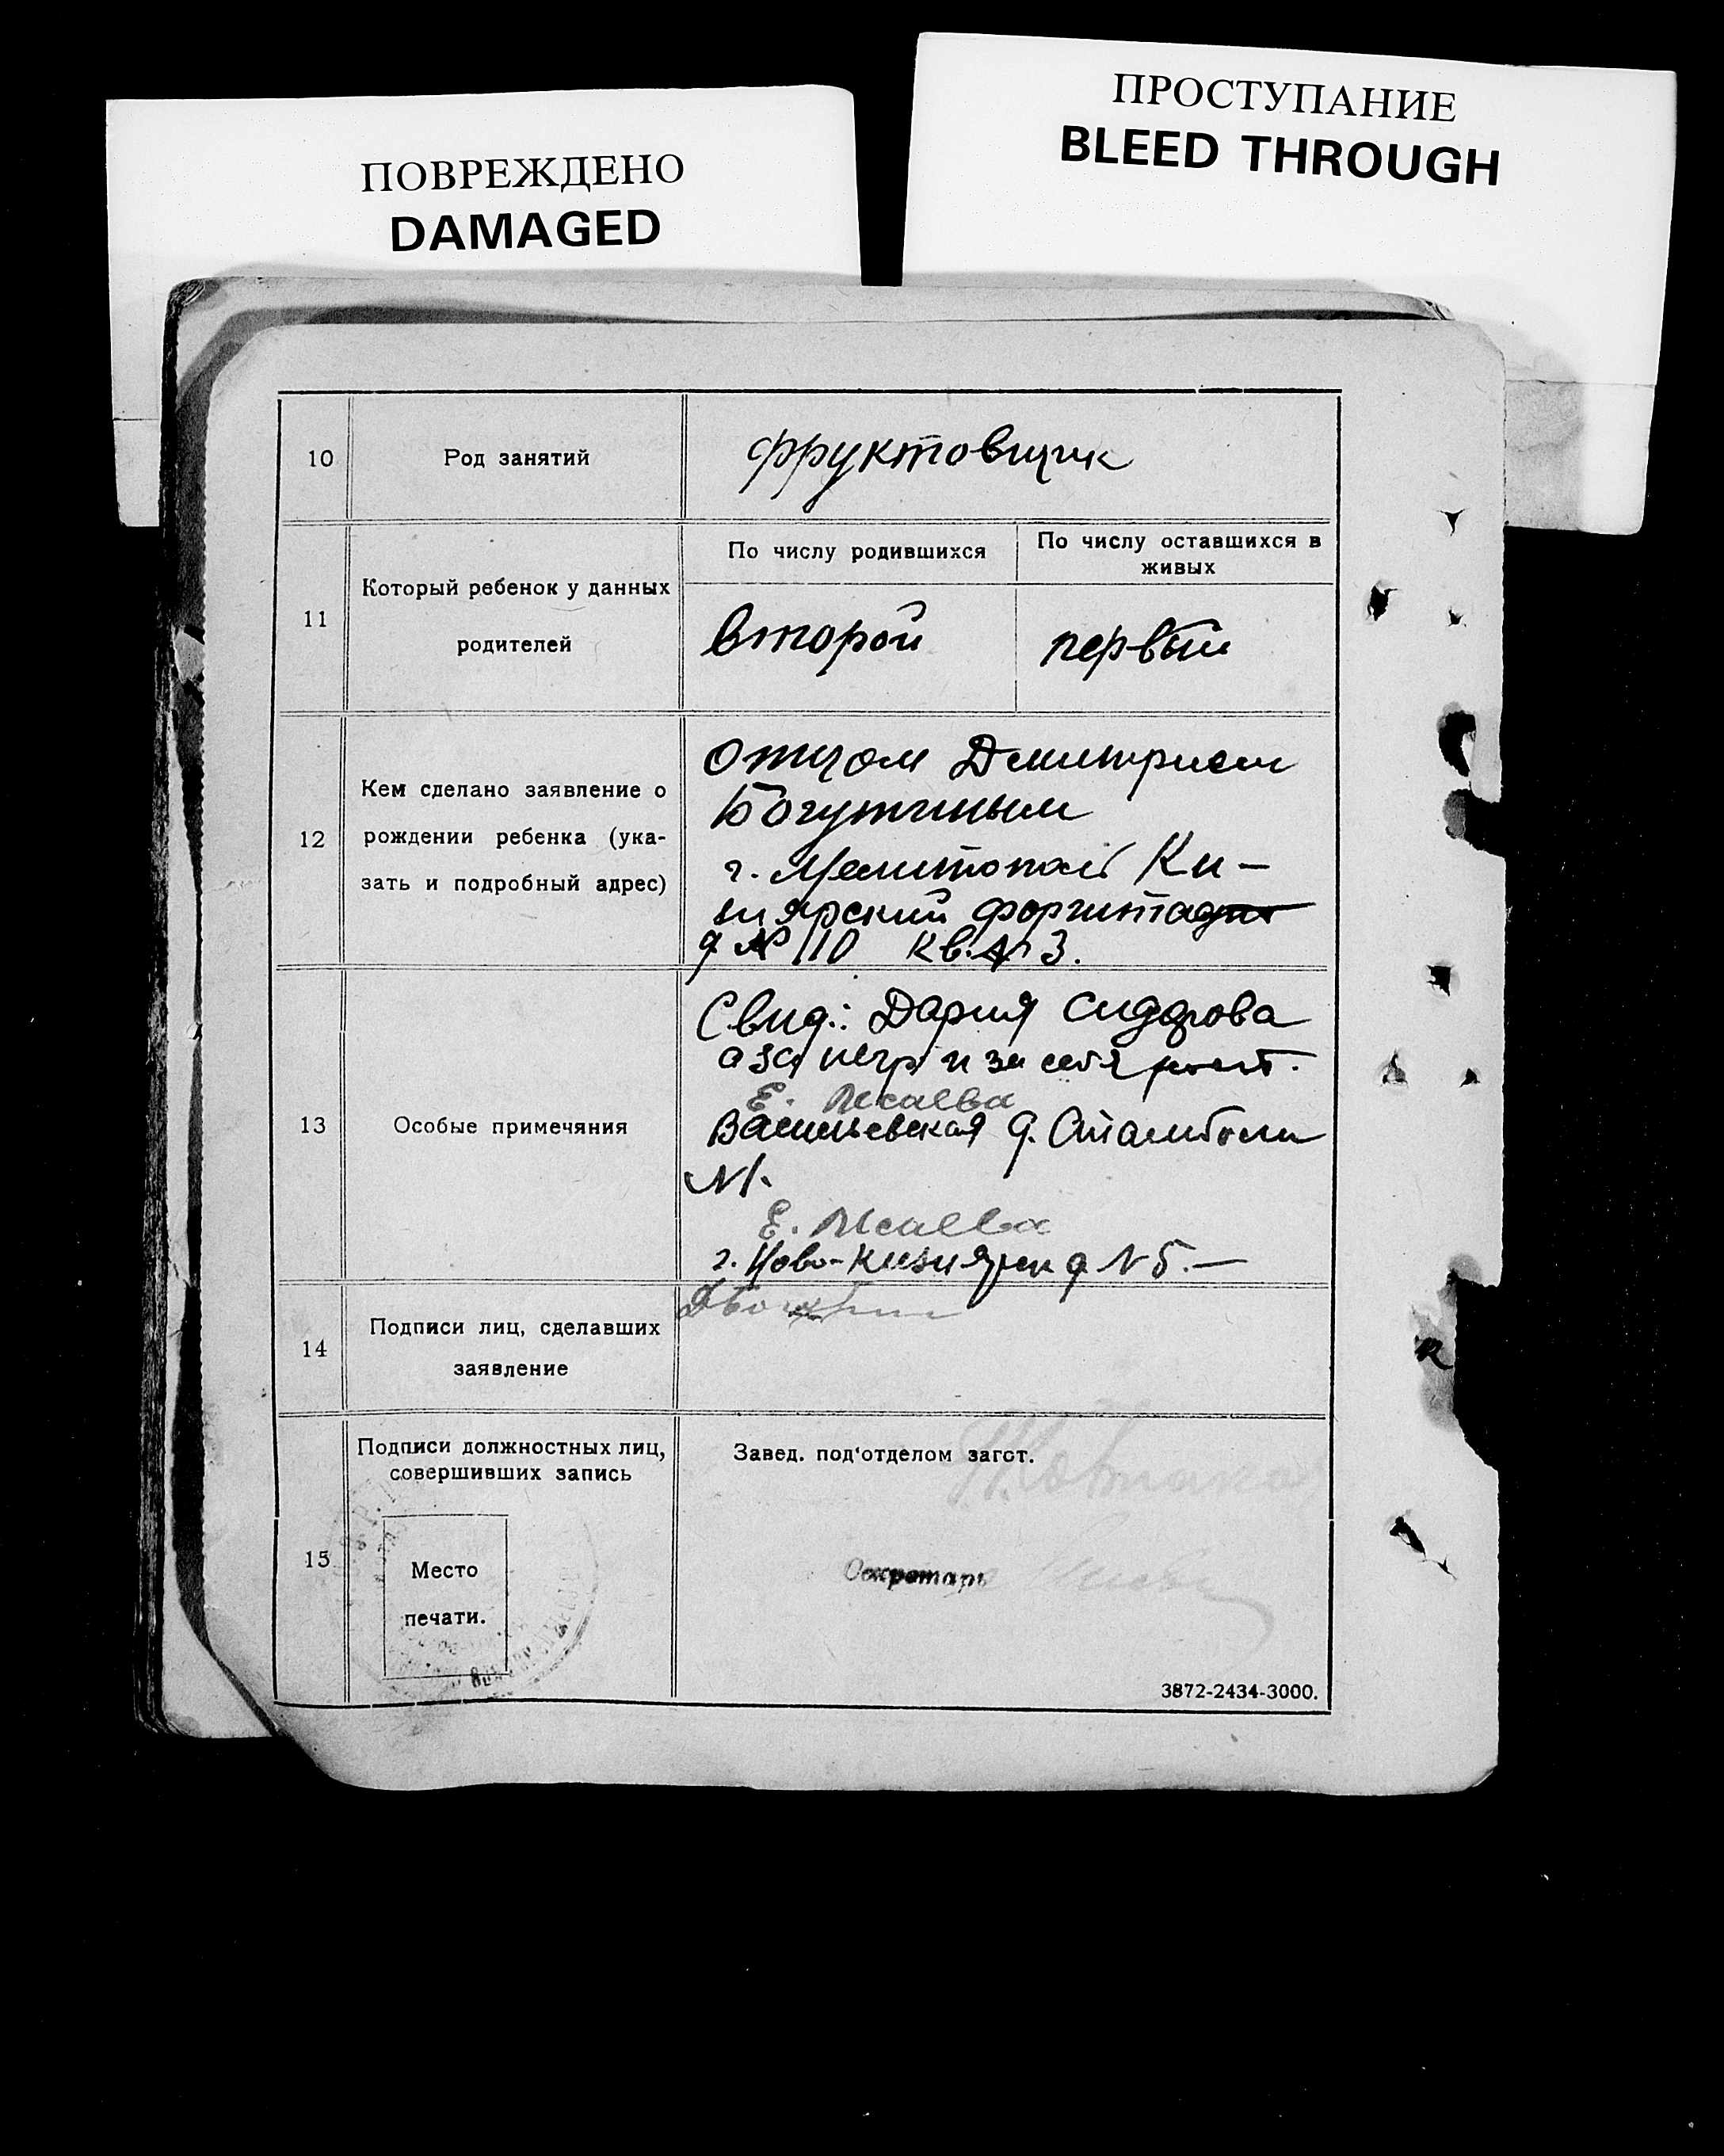 ПОВРЕЖДЕНО
DAMAGED
ПРОСТУПАНИЕ
BLEED THROUGH
10 Род занятий фруктовщик
11 Который ребенок у данных
родителей
По числу родившихся
По числу оставшихся в
живых
второй первый
12 Кем сделано заявление о
рождении ребенка (ука-
зать и подробный адрес)
отцом Дмитрием
Богутиным
г. Мелитополь Ки-
зиярский форштадт
д № 110 кв. № 3.
13 Особые примечяния
Свид.: Дария Сидорова
а за негр и за себя
Е. Исаева
Васильевская д.
№ 1.
Е. Исаева
г. Ново-Кизияр д № 5. —
14 Подписи лиц, сделавших
заявление
15 Подписи должностных лиц,
совершивших запись
Место
печати.
Завед. под'отделом загст.
Секретарь
3872-2434-3000.